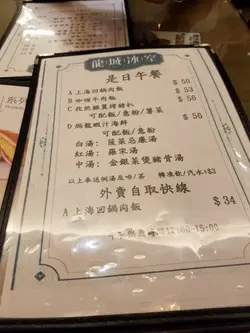 龍城冰室
是日午餐
A 上海回鍋肉飯 $50
B 咖喱牛肉飯 $53
C 孜然雞翼烤豬扒 $50
可配飯/意粉/薯菜
D 焗龍蝦汁海鮮 $56
可配飯/意粉
白湯: 菠菜忌廉湯
紅湯: 羅宋湯
中湯: 金銀菜煲豬骨湯
以上奉送例湯及啡/茶 轉凍飲/汽水+$3
外賣自取快線
A 上海回鍋肉飯 $34
-15:00